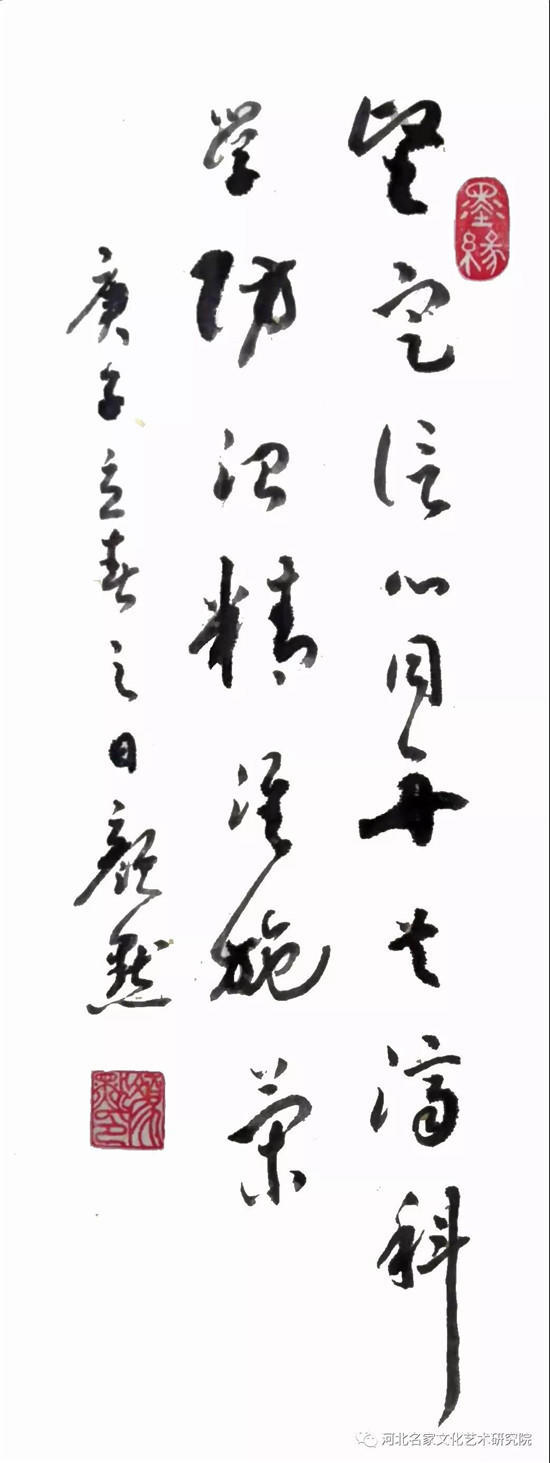 墨緣
坚定信心同舟共济科
学防治精准施策
庚子立春之日颜默
河北名家文化艺术研究院